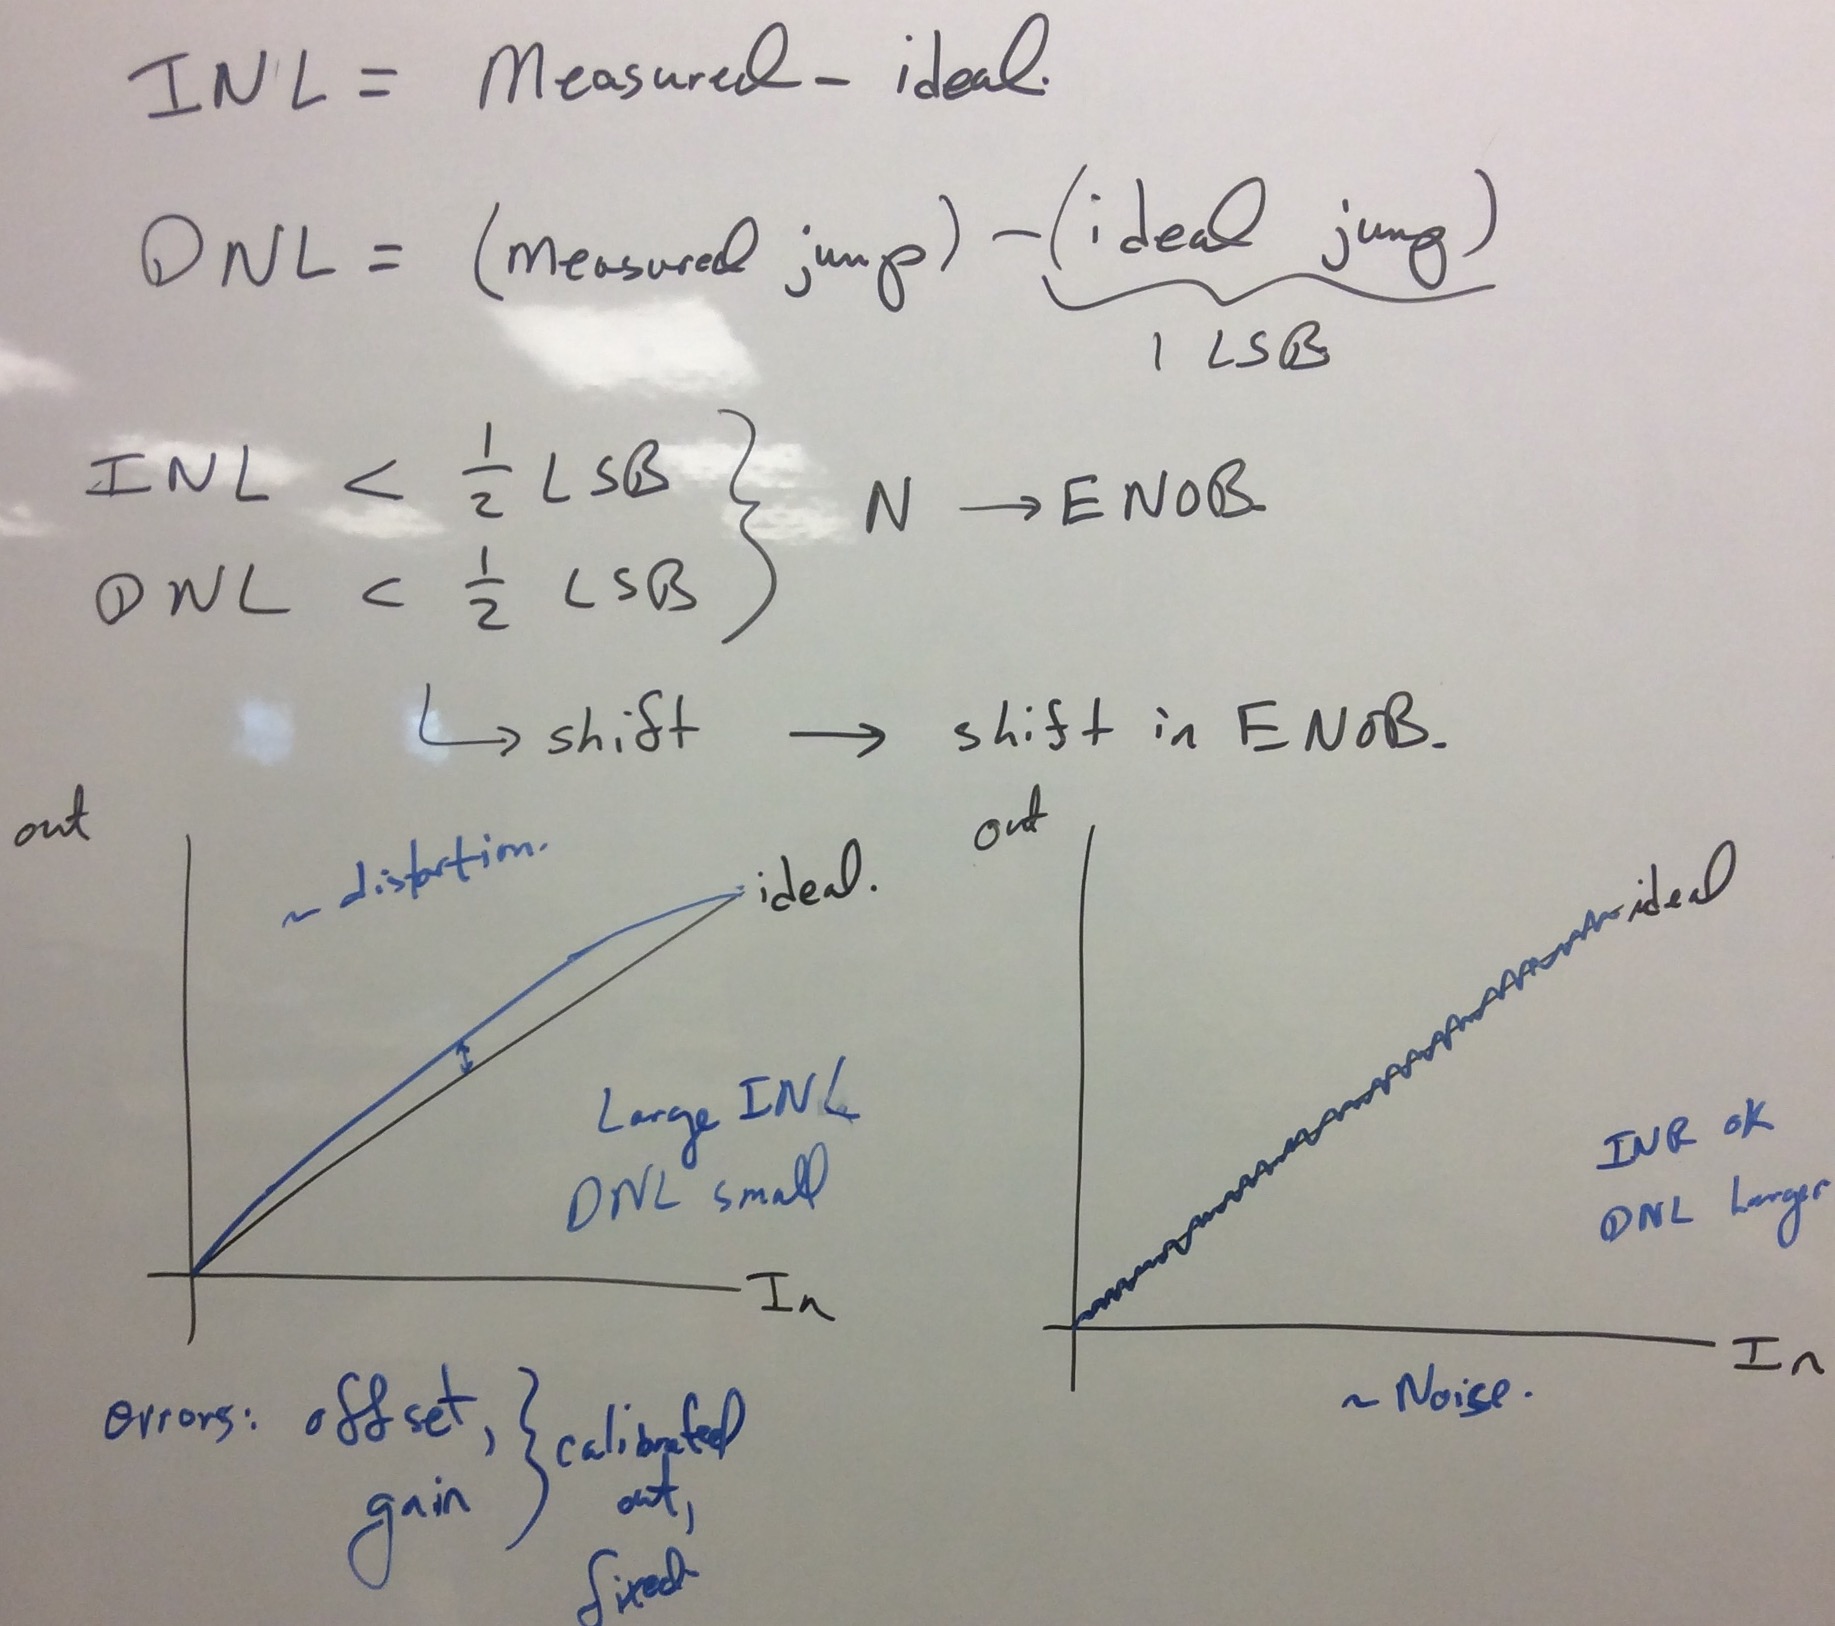 INL = Measured - ideal.
DNL = (measured jump) - (ideal jump)
1 LSB
INL < 1/2 LSB } N → ENOB
DNL < 1/2 LSB
↳ shift → shift in ENOB.
out
~ distortion.
ideal.
Large INL
DNL small
In
errors: offset, } calibrated
gain out,
fixed
out
ideal
INR ok
DNL Larger
In
~ Noise.